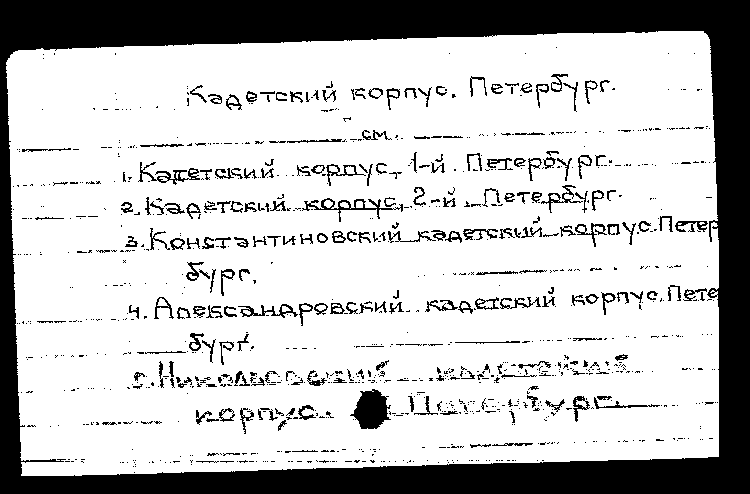 Кадетский корпус. Петербург.
см.
1. Кадетский корпус, 1-й. Петербург.
2. Кадетский корпус, 2-й. Петербург.
3. Константиновский кадетский корпус. Петер
бург.
4. Александровский кадетский корпус. Пете
бург.
5. Николаевский кадетский
корпус. Петербург.